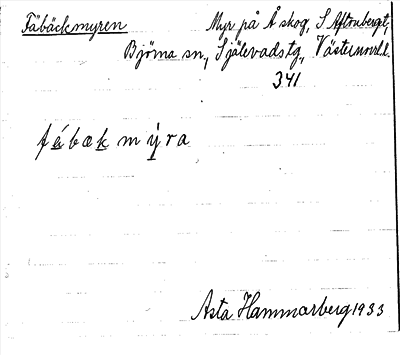 Fäbäckmyren Myr på Å skog, S Aftonberget,
Björna sn., Själevads tg., Västernorrl. l.
341
fébækmýra
Asta Hammarberg 1933